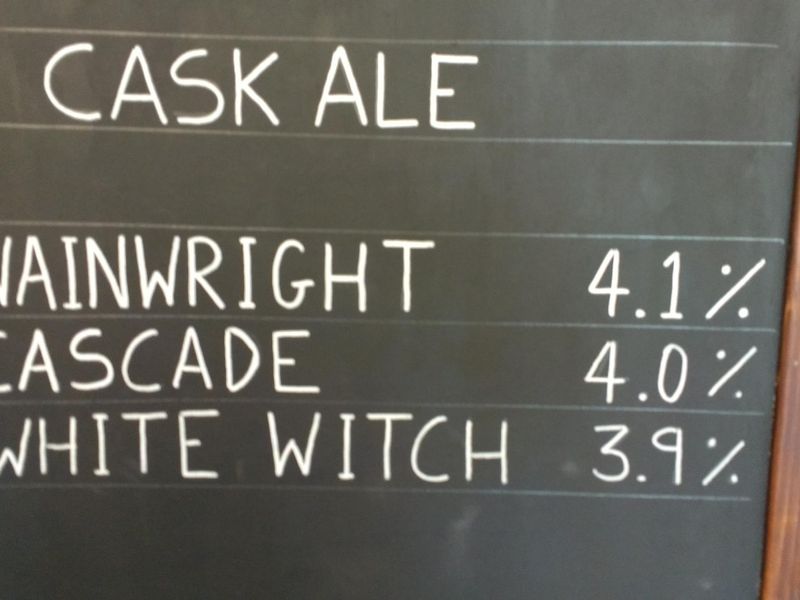 CASK ALE
WAINWRIGHT 4.1%
CASCADE 4.0%
WHITE WITCH 3.9%